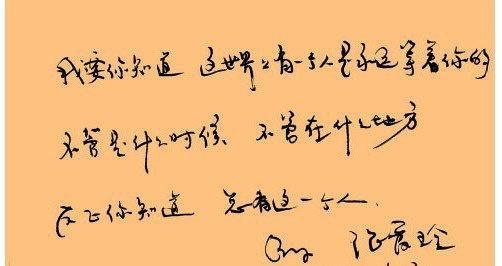 我要你知道 这世界上有一个人是永远等着你的
不管是什么时候、不管在什么地方
反正你知道 总有这一个人.